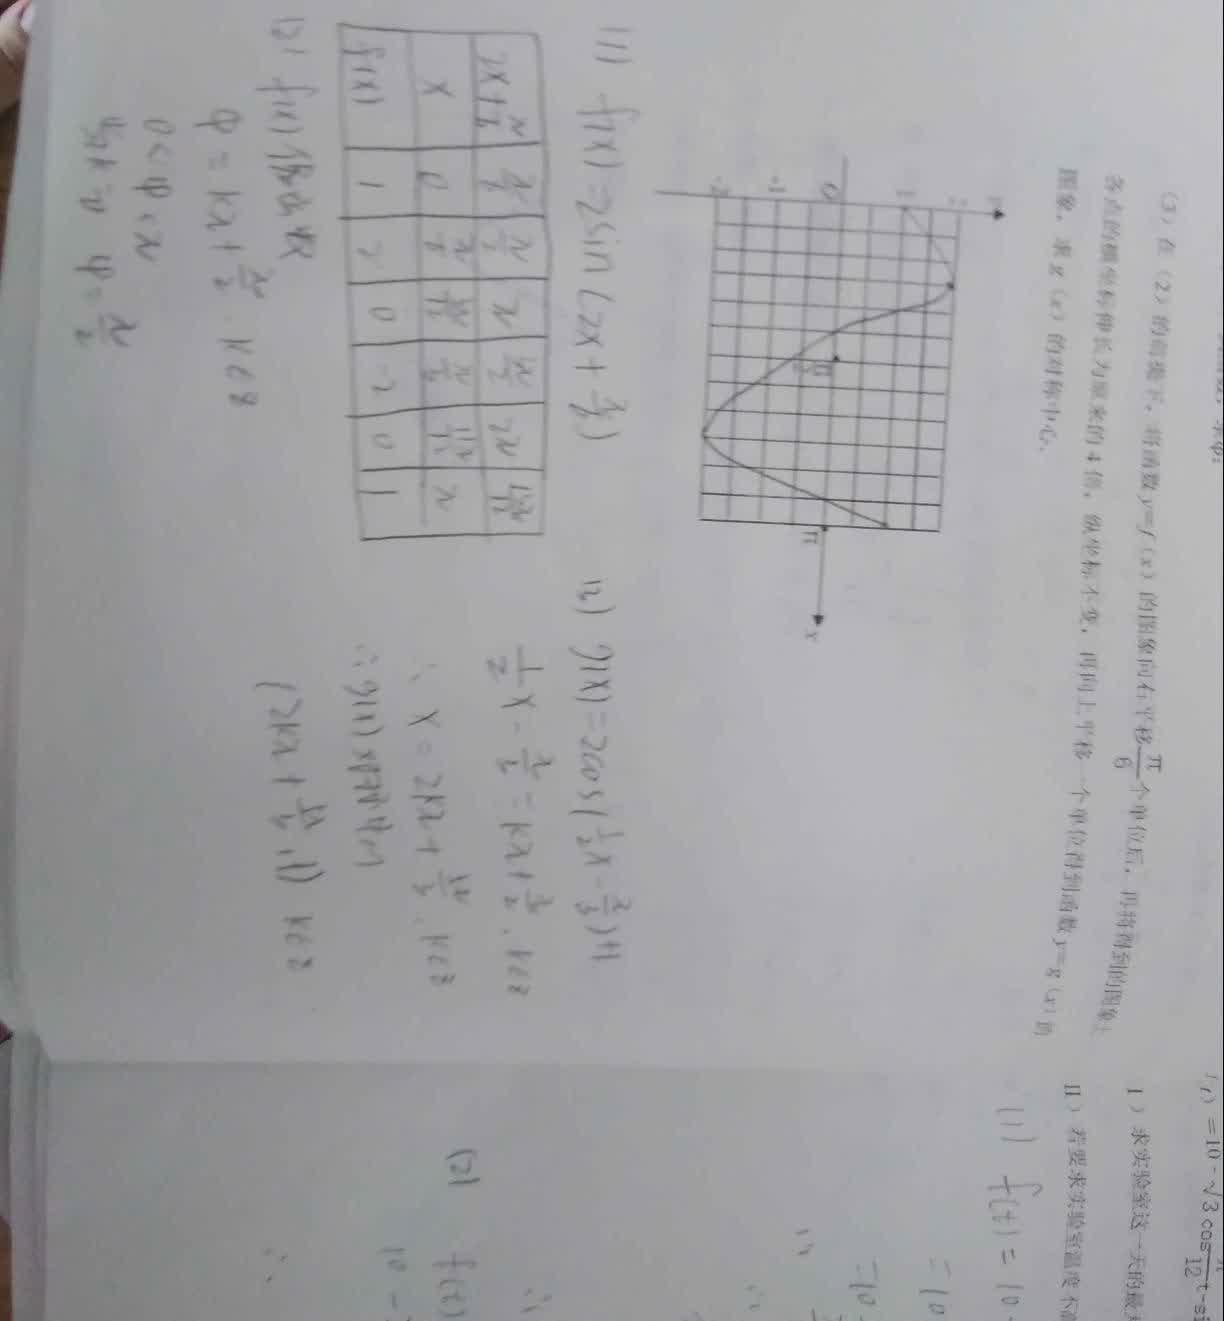 (3)在(2)的前提下，将函数y=f(x)的图象向右平移π/6个单位后，再将得到的图象上
各点的横坐标伸长为原来的4倍，纵坐标不变，再向上平移一个单位得到函数y=g(x)的
图象，求g(x)的对称中心．
y
2
1
0
-1
-2
π/2
π
x
(1) f(x)=2sin(2x+π/6)
2x+π/6 π/6 π/2 π 3π/2 2π 13π/6
x 0 π/6 5π/12 2π/3 11π/12 π
f(x) 1 2 0 -2 0 1
(2) f(x)偶函数
φ=kπ+π/2, k∈Z
0<φ<π
当k=0 φ=π/2
(3) g(x)=2cos(1/2x-π/3)+1
1/2x-π/3=kπ+π/2, k∈Z
∴ x=2kπ+5π/3, k∈Z
∴g(x)对称中心
(2kπ+5π/3, 1) k∈Z
f(t)=10-√3cosπ/12t-si
I)求实验室这一天的最
II)若要求实验室温度不
(1) f(t)=10-
=10
=10-
∴
∴
∴
(2) f(t)
10-
∴